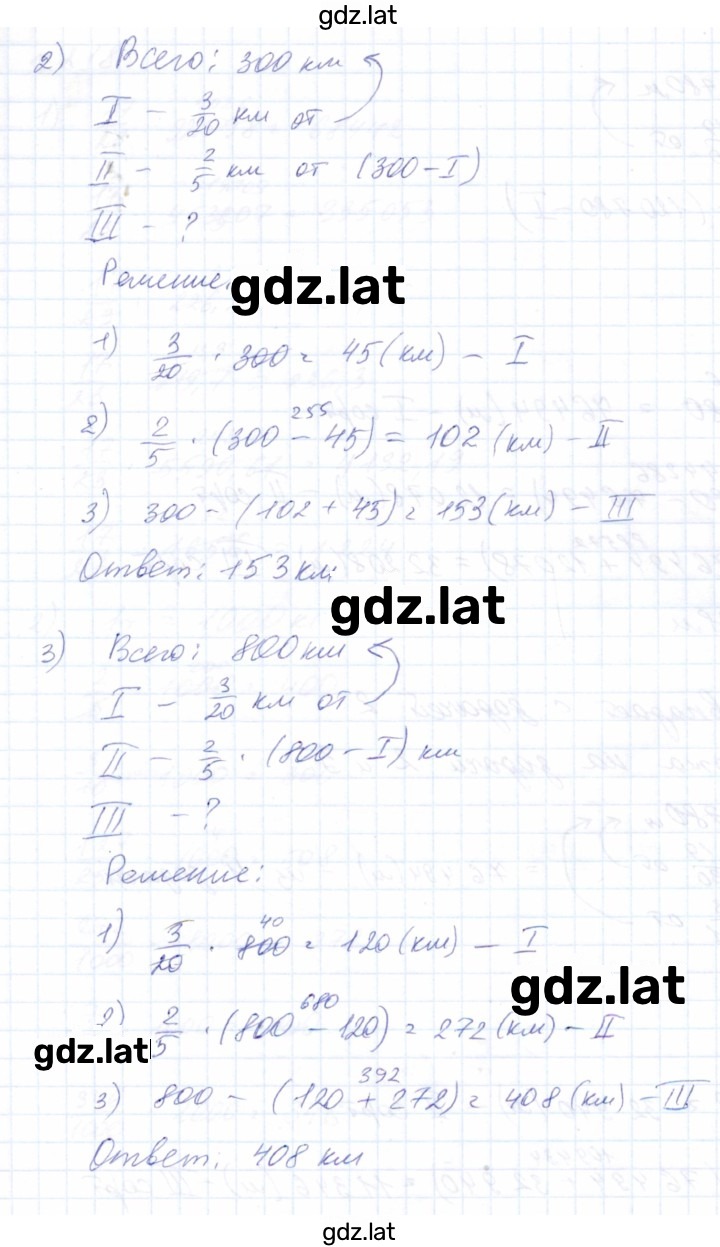 gdz.lat
2) Всего: 300 км
I - 3/20 км от
II - 2/5 км от (300 - I)
III - ?
Решение.
gdz.lat
1) 3/20 · 300 = 45 (км) - I
255
2) 2/5 · (300 - 45) = 102 (км) - II
3) 300 - (102 + 45) = 153 (км) - III
Ответ: 153 км.
gdz.lat
3) Всего: 800 км
I - 3/20 км от
II - 2/5 · (800 - I) км
III - ?
Решение:
40
1) 3/20 · 800 = 120 (км) - I
gdz.lat
680
2) 2/5 · (800 - 120) = 272 (км) - II
gdz.lat
392
3) 800 - (120 + 272) = 408 (км) - III
Ответ: 408 км
gdz.lat